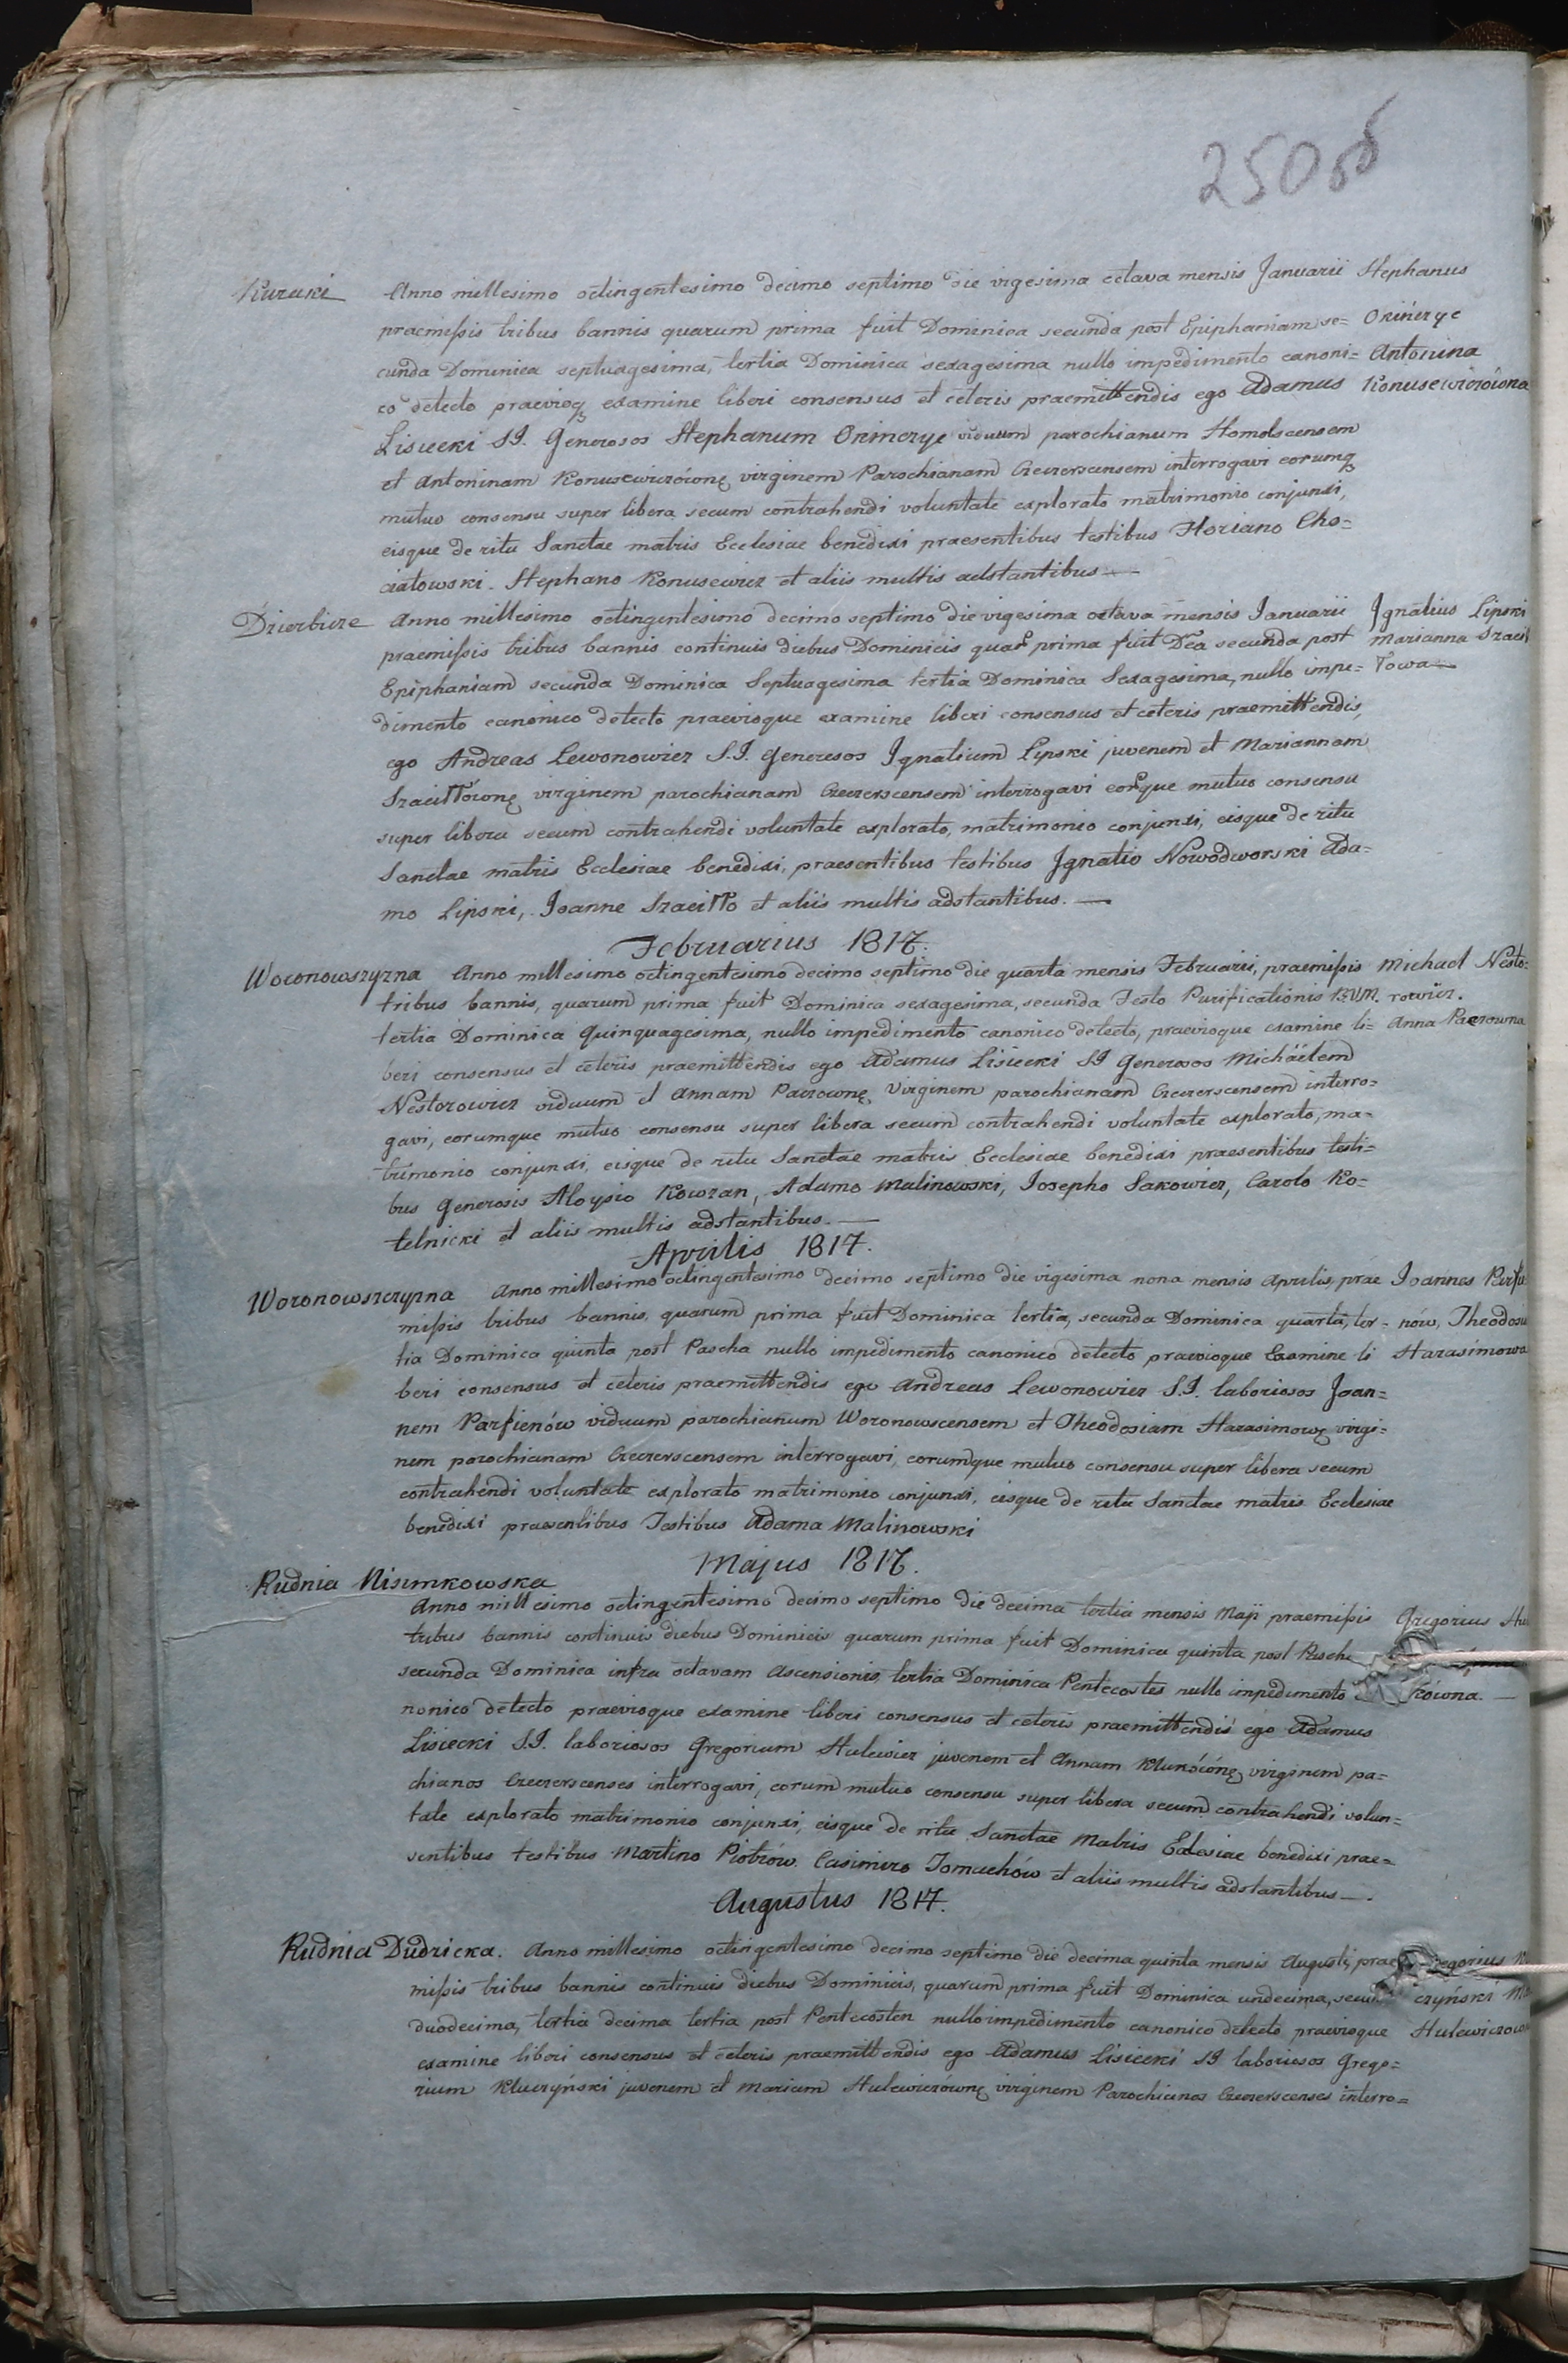 250 об
Kuraki Anno millesimo octingentesimo decimo septimo die vigesima octava mensis Januarii Stephanus
praemissis tribus bannis quarum prima fuit Dominica secunda post Epiphaniam se= Okińczyc
cunda Dominica septuagesima, tertia Dominica sexagesima nullo impedimento canoni= Antonina
co detecto praevioq examine liberi consensus et ceteris praemittendis ego Adamus Konusewiczówna
Lisiecki S.J. Generosos Stephanum Okinczyc viduum parochianum Homelscensem
et Antoninam Konusewiczównę virginem Parochianam Czeczerscensem interrogavi eorumq
mutuo consensu super libera secum contrahendi voluntate explorato matrimonio conjunxi,
eisque de ritu Sanctae matris Ecclesiae benedixi praesentibus testibus Floriano Cho=
ciatowski. Stephano Konusewicz et aliis multis adstantibus.—
Dzierbicze Anno millesimo octingentesimo decimo septimo die vigesima octava mensis Januarii Ignatius Lipski
praemissis tribus bannis continuis diebus Dominicis quar prima fuit Dca secunda post Marianna Szacił
Epiphaniam secunda Dominica Septuagesima tertia Dominica Sexagesima, nullo impe= łowa—
dimento canonico detecto praevioque examine liberi consensus et ceteris praemittendis,
ego Andreas Lewonowicz S.J. Generosos Ignatium Lipski juvenem et Mariannam
Szaciłłównę virginem parochianam Czeczerscensem interrogavi eorque mutuo consensu
super libera secum contrahendi voluntate explorato, matrimonio conjunxi, eisque de ritu
Sanctae matris Ecclesiae benedixi, praesentibus testibus Ignatio Nowodworski Ada=
mo Lipski, Joanne Szaciłło et aliis multis adstantibus.—
Februarius 1817.
Woronowszyzna Anno millesimo octingentesimo decimo septimo die quarta mensis Februarii, praemissis Michael Nesto=
tribus bannis, quarum prima fuit Dominica sexagesima, secunda Festo Purificationis B.V.M. rowicz.
tertia Dominica Quinquagesima, nullo impedimento canonico detecto, praevioque examine li= Anna Pacrowna
beri consensus et ceteris praemittendis ego Adamus Lisiecki SJ Generosos Michaelem
Nestorowicz viduum et Annam Pacrownę Virginem parochianam Czeczerscensem interro=
gavi, eorumque mutuo consensu super libera secum contrahendi voluntate explorato, ma=
trimonio conjunxi, eisque de ritu Sanctae matris Ecclesiae benedixi praesentibus testi=
bus Generosis Aloysio Kowzan, Adamo Malinowski, Josepho Sakowicz, Carolo Ko=
telnicki et aliis multis adstantibus.—
Aprilis 1817.
Woronowszczyzna Anno millesimo octingentesimo decimo septimo die vigesima nona mensis Aprilis, prae Joannes Parfie
missis tribus bannis, quarum prima fuit Dominica tertia, secunda Dominica quarta, ter= nów, Theodosia
tia Dominica quinta post Pascha nullo impedimento canonico detecto praevioque Examine li Harasimowa
beri consensus et ceteris praemittendis ego Andreas Lewonowicz S.J. laboriosos Joan=
nem Parfienów viduum parochianum Woronowscensem et Theodosiam Harasimowę virgi=
nem parochianam Czeczerscensem interrogavi, eorumque mutuo consensu super libera secum
contrahendi voluntate explorato matrimonio conjunxi, eisque de ritu Sanctae matris Ecclesiae
benedixi praesentibus Testibus Adama Malinowski
Majus 1817.
Rudnia Nisimkowska
Anno millesimo octingentesimo decimo septimo die decima tertia mensis Maji praemissis Gregorius Hu
tribus bannis continuis diebus Dominicis quarum prima fuit Dominica quinta post Pascha
secunda Dominica infra octavam Ascensionis, tertia Dominica Pentecostes nullo impedimento kówna.—
nonico detecto praevioque examine liberi consensus et ceteris praemittendis ego Adamus
Lisiecki S.J. laboriosos Gregorium Hulewicz juvenem et Annam Klukównę virginem pa=
chianos Czeczerscenses interrogavi, eorum mutuo consensu super libera secum contrahendi volun=
tate explorato matrimonio conjunxi, eisque de ritu Sanctae Matris Eclesiae benedixi prae=
sentibus testibus Martino Piotrów. Casimiro Tomachów et aliis multis adstantibus—.
Augustus 1817.
Rudnia Dudzicka. Anno millesimo octingentesimo decimo septimo die decima quinta mensis Augusti, prae Gregorius
missis tribus bannis continuis diebus Dominicis, quarum prima fuit Dominica undecima, secun czyński
duodecima, tertia decima tertia post Pentecosten nullo impedimento canonico detecto praevioque Hulewiczow
examine liberi consensus et ceteris praemittendis ego Adamus Lisiecki SJ laboriosos Grego=
rium Kluczyński juvenem et Mariam Hulewiczównę virginem Parochianos Czeczerscenses interro=